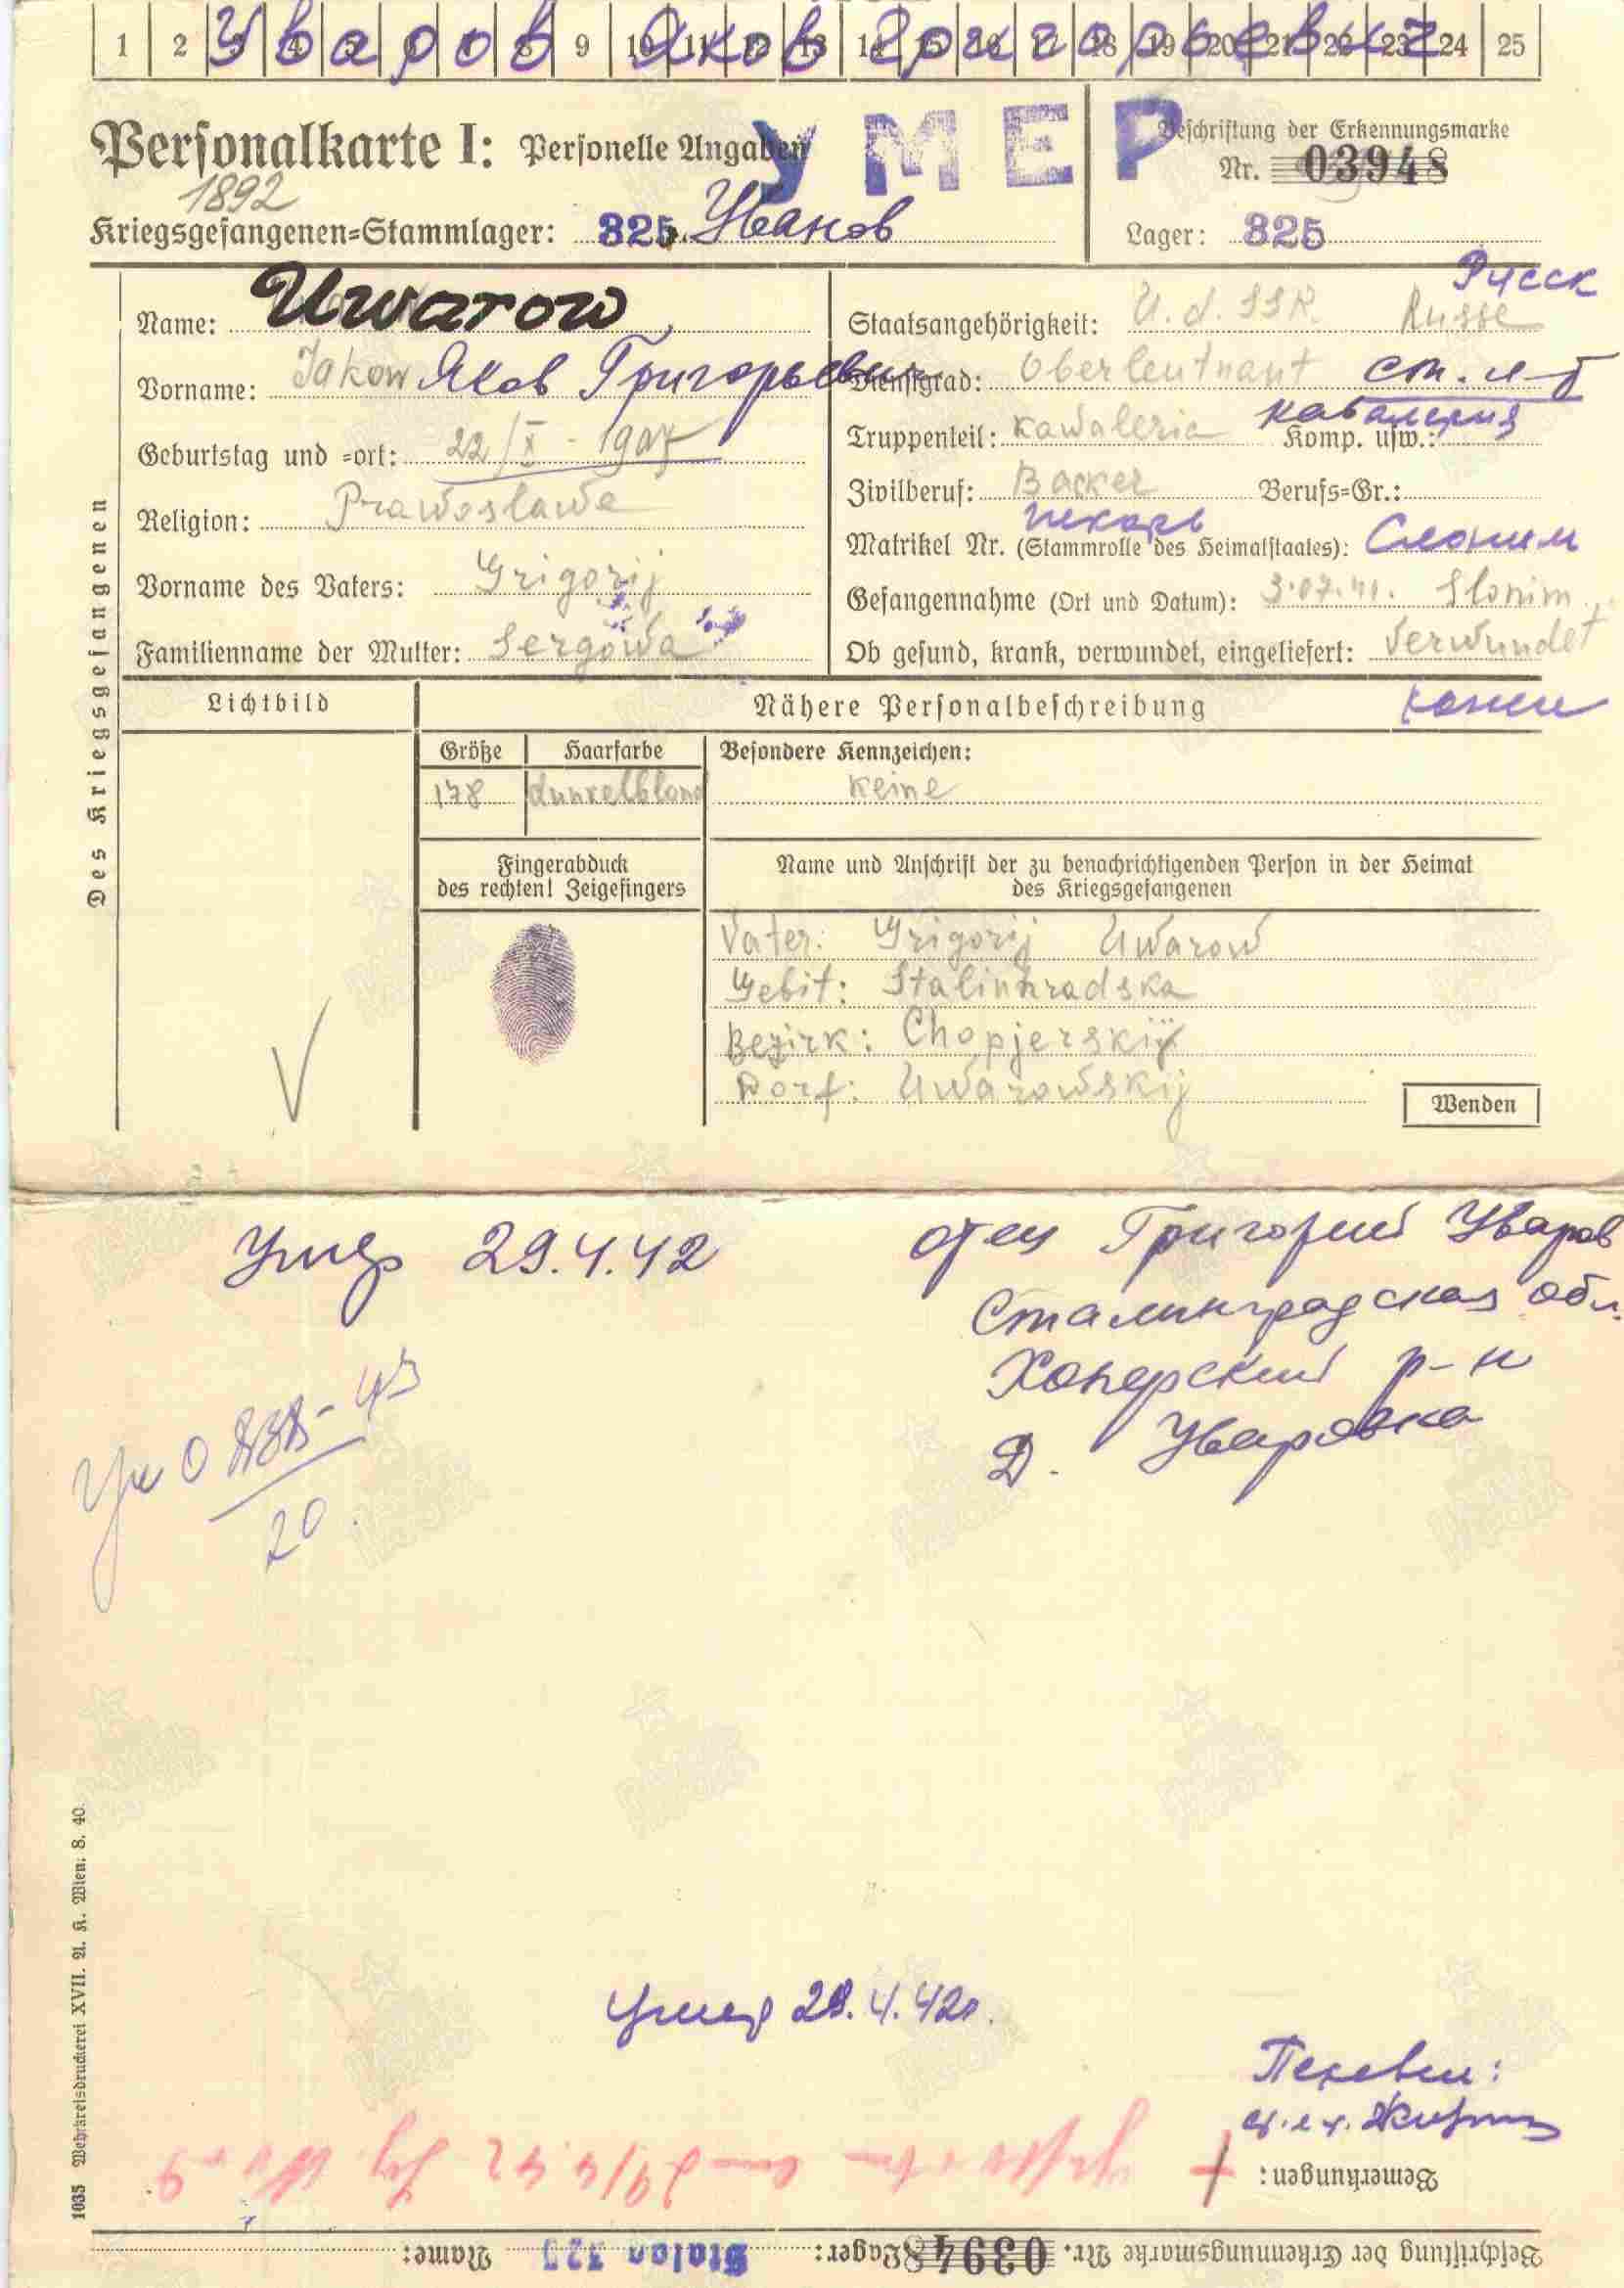 1 2 3 4 5 6 7 8 9 10 11 12 13 14 15 16 17 18 19 20 21 22 23 24 25
Уваров Яков Григорьевич
Personalkarte I: Personelle Angaben
УМЕР
Beschriftung der Erkennungsmarke
Nr. 03948
1892
Kriegsgefangenen=Stammlager: 325
Lager: 325
Des Kriegsgefangenen
Name: Uwarow
Vorname: Jakow Яков Григорьевич
Geburtstag und =ort: 22/X - 1907
Religion: Prawoslawe
Vorname des Vaters: Grigorij
Familienname der Mutter: Sergowa
Русск
Staatsangehörigkeit: U.d.SSR. Russe
Dienstgrad: Oberleutnant ст. л-т
Truppenteil: Kawaleria Komp. usw.: кавалерия
Zivilberuf: Backer Berufs=Gr.:
пекарь
Matrikel Nr. (Stammrolle des Heimatstaates): Слоним
Gefangennahme (Ort und Datum): 3.07.41. Slonim
Ob gesund, krank, verwundet, eingeliefert: Verwundet
Lichtbild
Nähere Personalbeschreibung
Größe Haarfarbe Besondere Kennzeichen:
178 dunkelblond keine
Fingerabduck
des rechten! Zeigefingers
Name und Anschrift der zu benachrichtigenden Person in der Heimat
des Kriegsgefangenen
Vater: Grigorij Uwarow
Gebit: Stalinhradska
Bezirk: Chopjerskij
Dorf: Uwarowskij
Wenden
Умер 29.4.42
отец Григорий Уваров
Сталинградская обл.
Хоперский р-н
Д. Уваровка
20
Умер 29.4.42г.
Перевел:
Bemerkungen:
Beschriftung der Erkennungsmarke Nr. 03948 Lager: Stalag 325 Name:
1035 Wehrkreisdruckerei XVII. A. K. Wien; 8. 40.